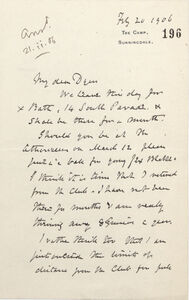 Feby 20 1906
Ansd.
21.ii.06
THE CAMP,
SUNNINGDALE.
196
My dear Dyer
We leave this day for
x Bath, 14 South Parade &
shall be there for a month.
Should you be at the
on March 12 please
put in a ball for
I think it is time that I retired
from the Club. I have not been
there for months & am really
throwing away a year.
I rather think too that I am
just outside the limits of
distance from the Club for